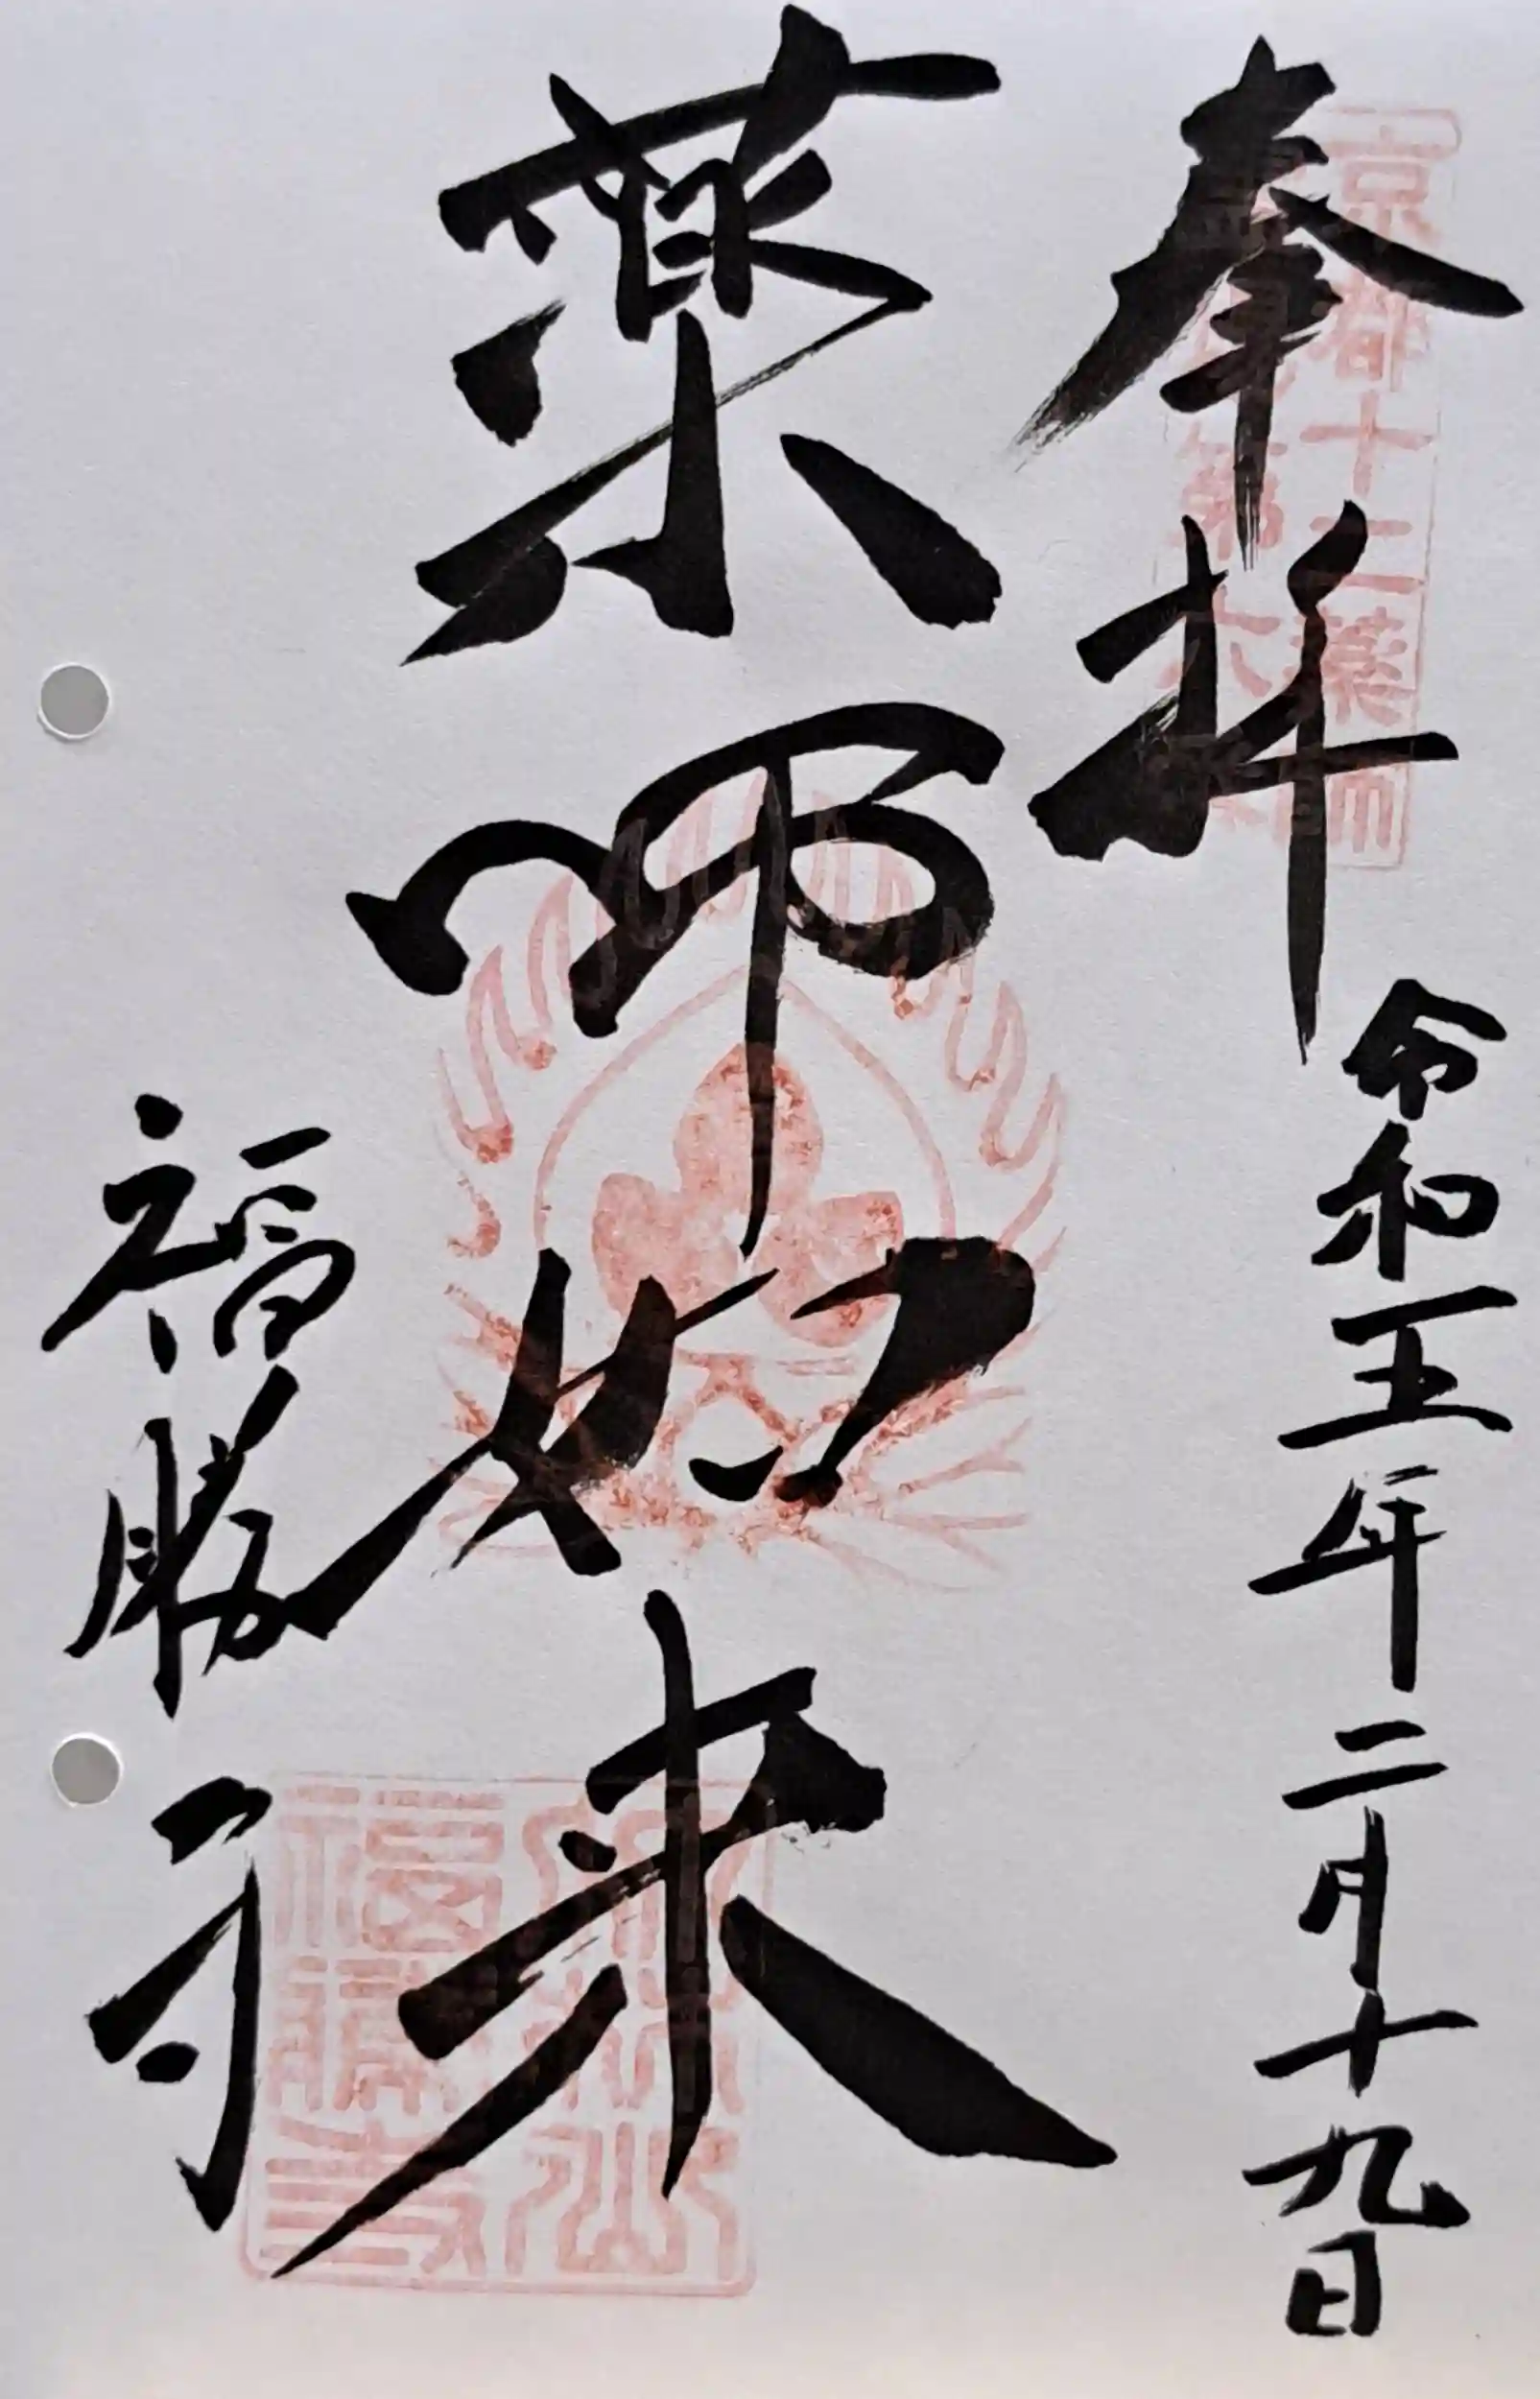 奉拝
令和五年二月十九日
京都十二薬師
第六番
薬師如来
福勝寺